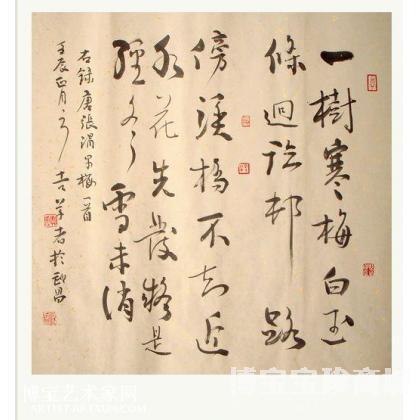 一樹寒梅白玉
條迥臨邨路
傍溪橋不知近
水花先發疑是
經冬雪未消
右錄唐張渭早梅一首
壬辰正月 於武昌
博宝艺术家网
ARTIST.ARTXUN.COM